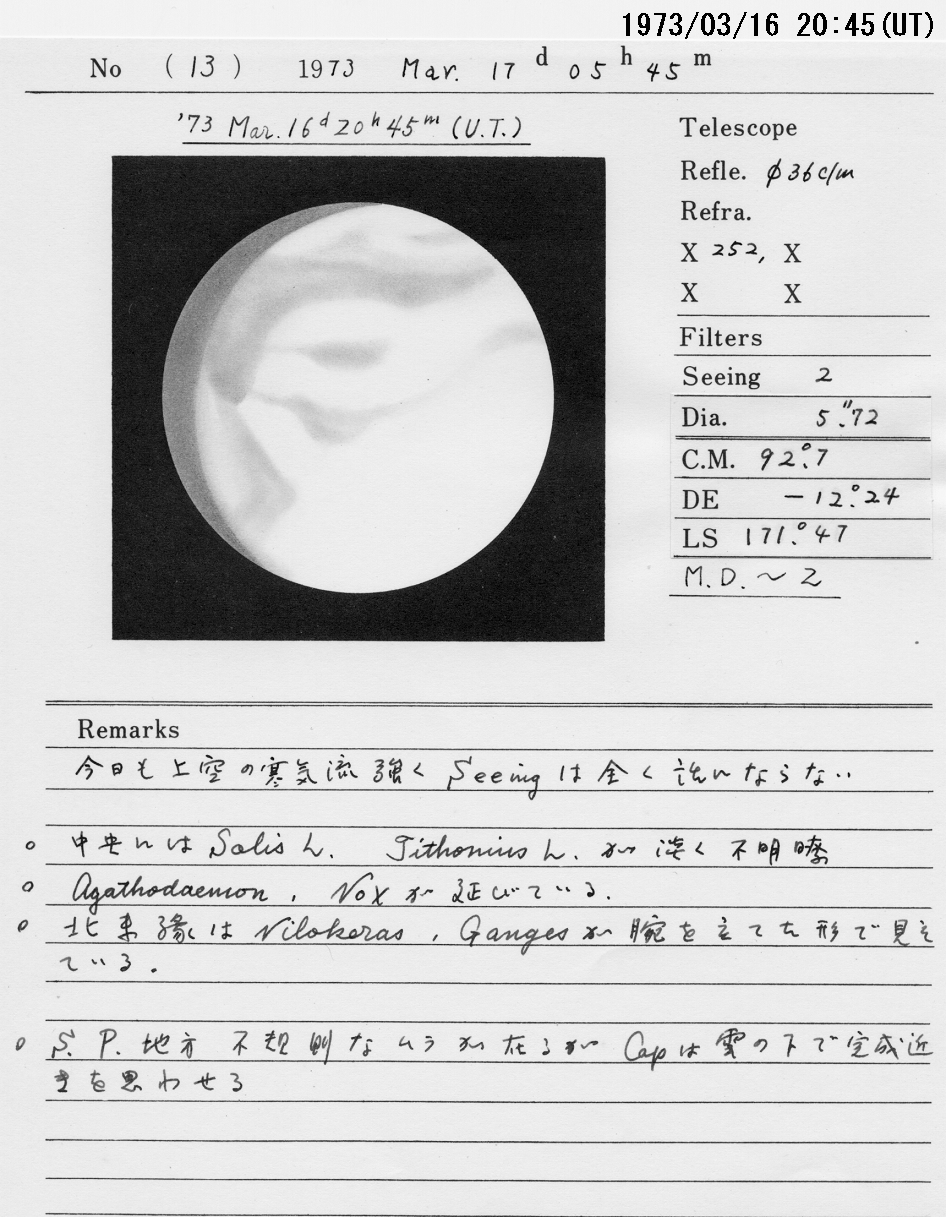 1973/03/16 20:45(UT)
No (13) 1973 Mar. 17 d 05 h 45 m
'73 Mar. 16 d 20 h 45 m (U.T.)
Telescope
Refle. φ36c/m
Refra.
X 252, X
X X
Filters
Seeing 2
Dia. 5."72
C.M. 92.°7
DE −12.°24
LS 171.°47
M.D. ~ 2
Remarks
今日も上空の寒気流強く Seeingは全く話にならない
○ 中央には Solis L. Tithonius L. が淡く不明瞭
○ Agathodaemon, Nox が延びている.
○ 北東縁は Nilokeras, Ganges が腕を立てた形で見え
ている.
○ S. P. 地方 不規則なムラが在るが Capは雲の下で完成近
きを思わせる